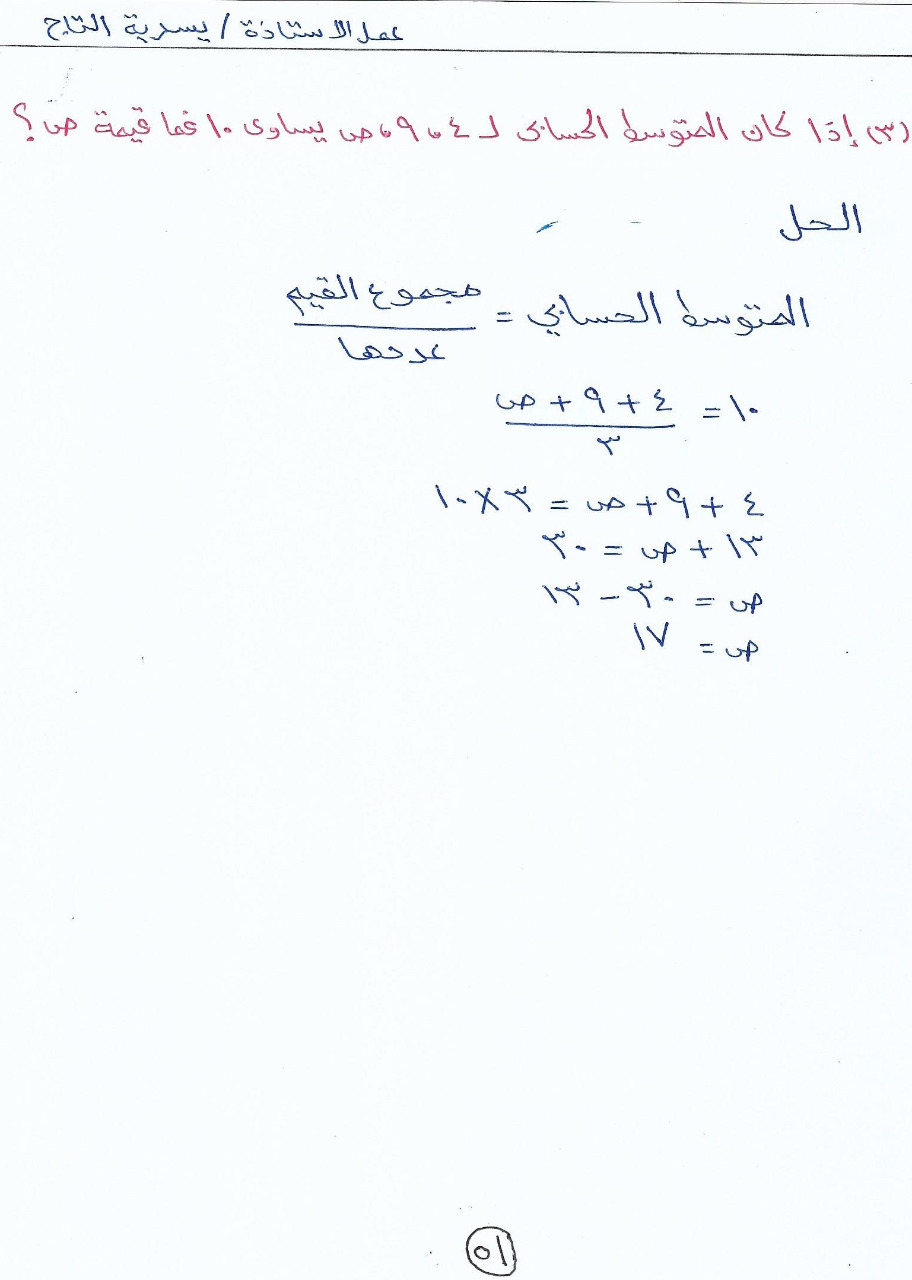 عمل الاستاذة / يسرية التاج
(٣) إذا كان المتوسط الحسابى لـ ٤ ، ٩ ، ص يساوى ١٠ فما قيمة ص ؟
الحل
المتوسط الحسابي = مجموع القيم
عددها
١٠ = ٤ + ٩ + ص
٣
٤ + ٩ + ص = ٣ × ١٠
١٣ + ص = ٣٠
ص = ٣٠ − ١٣
ص = ١٧
١٥